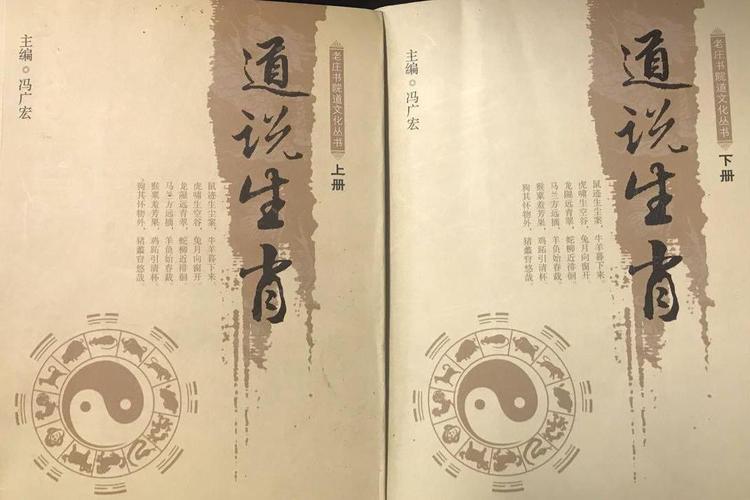 老庄书院道文化丛书
上册
道说生肖
鼠迹生尘案，牛羊暮下来
虎啸生空谷，兔月向窗开
龙隰远青翠，蛇柳近徘徊
马兰方远摘，羊负始春栽
猴栗羞芳果，鸡跖引清杯
狗其怀物外，猪蠡窅悠哉
主编 冯广宏
老庄书院道文化丛书
下册
道说生肖
鼠迹生尘案，牛羊暮下来
虎啸生空谷，兔月向窗开
龙隰远青翠，蛇柳近徘徊
马兰方远摘，羊负始春栽
猴栗羞芳果，鸡跖引清杯
狗其怀物外，猪蠡窅悠哉
主编 冯广宏